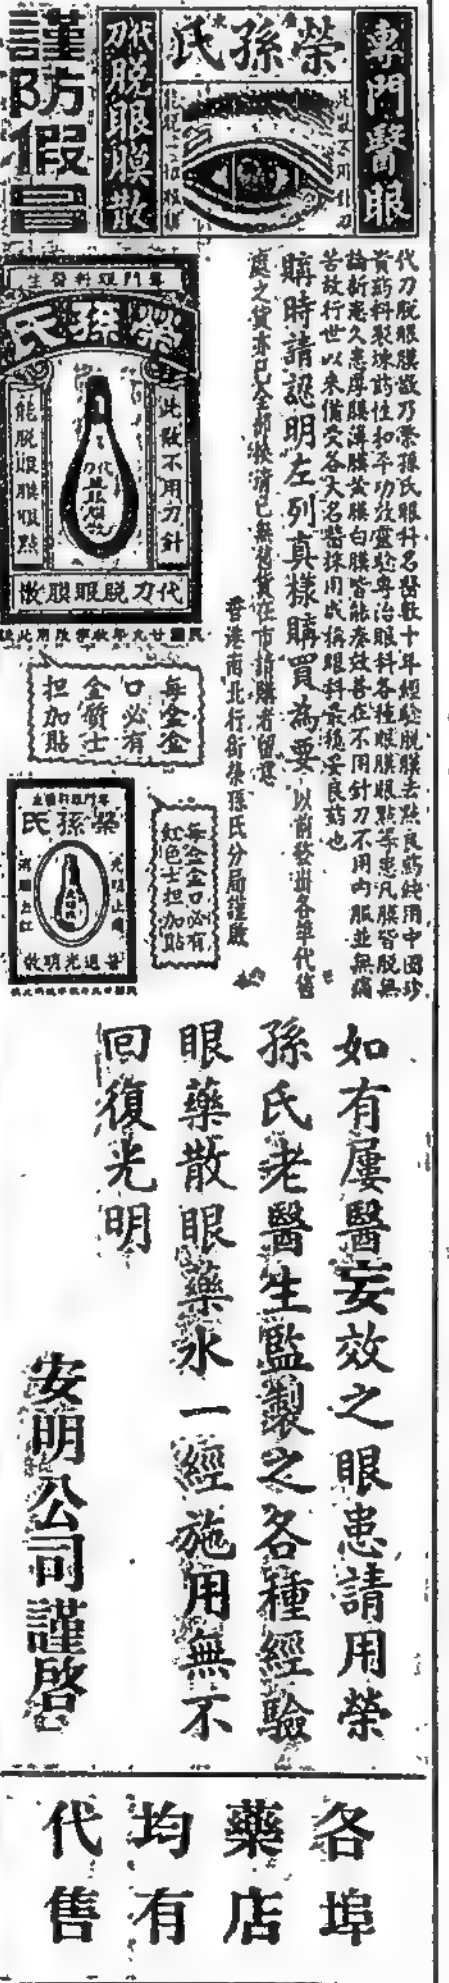 專門醫眼
榮孫氏
此散不用針刀
代刀脫眼膜散
謹防假冒
代刀脫眼膜散乃榮孫氏眼科名醫數十年經驗脫膜去點良葯純用中國珍
貴葯料製煉葯性和平功效靈驗專治眼科各種眼膜眼點等患凡膜皆脫無
論新患久患厚膜薄膜黃膜白膜皆能奏效善在不用針刀不用內服並無痛
苦故行世以來備受各大名醫採用咸稱眼科最穩妥良葯也
購時請認明左列真樣購買為要以前發出各準代售
處之貨亦已全部換清已無舊貨在市請購者留意
香港南北行街榮孫氏分局謹啟
專門眼科醫生
榮孫氏
此散不用刀針
能脫眼膜眼點
代刀脫眼膜散
每盒盒
口必有
金質士
担加貼
專門眼科醫生
榮孫氏
光明止痛
消膜去紅
普退光明散
每盒盒口必有
紅色士担加貼
如有屢醫妄效之眼患請用榮
孫氏老醫生監製之各種經驗
眼藥散眼藥水一經施用無不
回復光明
安明公司謹啓
各埠
藥店
均有
代售